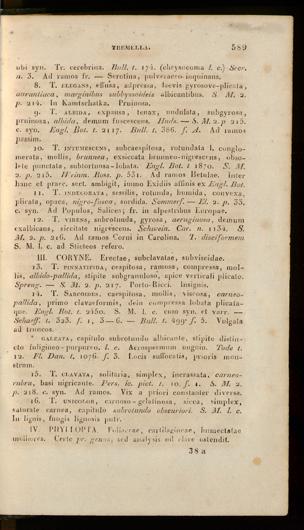 TREMELLA. 589
ubi syn. Tr. cerebrina. Bull. t. 174. (chrysocoma l. c.) Secr.
n. 3. Ad ramos fr. — Serotina, pulveraceo-inquinans.
8. T. ELEGANS, effusa, adpressa, laevis gyrosove-plicata,
aurantiaca, marginibus subbyssoideis albicantibus. S. M. 2.
p. 214. In Kamtschatka. Pruinosa.
9. T. ALBIDA, expansa, tenax, undulata, subgyrosa,
pruinosa, albida, demum fuscescens. Huds. — S. M. 2. p. 215.
c. syn. Engl. Bot. t. 2117. Bull. t. 386. f. A. Ad ramos
passim.
10. T. INTUMESCENS, subcaespitosa, rotundata l. conglo-
merata, mollis, brunnea, exsiccata brunneo-nigrescens, obso-
lete punctata, subtortuosa-lobata. Engl. Bot. t. 1870. S. M.
2. p. 215. Weinm. Ross. p. 531. Ad ramos Betulae. inter
hanc et praec. sect. ambigit, immo Exidiis affinis ex Engl. Bot.
11. T. INDECORATA, sessilis, rotunda, humida, convexa,
plicata, opaca, nigro-fusca, sordida. Sommerf. — El. 2. p. 33.
c. syn. Ad Populos, Salices; fr. in alpestribus Europae.
12. T. VIRENS, subrotunda, gyrosa, aeruginosa, demum
exalbicans, siccitate nigrescens. Schwein. Car. n. 1134. S.
M. 2. p. 216. Ad ramos Corni in Carolina. T. disciformem
S. M. l. c. ad Sticteos refero.
III. CORYNE. Erectae, subclavatae, subviscidae.
13. T. PINNATIFIDA, cespitosa, ramosa, compressa, mol-
lis, albido-pallida, stipite subgrumloso, apice verticali plicato.
Spreng. — S. M. 2. p. 217. Porto-Ricci. Insignis.
14. T. SARCOIDES, caespitosa, mollis, viscosa, carneo-
pallida, primo clavaeformis, dein compressa lobata plicata-
que. Engl. Bot. t. 2450. S. M. l. c. cum syn. et varr. —
Schaeff. t. 323. f. 1, 3—6. — Bull. t. 499. f. 5. Vulgata
ad truncos.
* GALEATA, capitulo subrotundo albicante, stipite distin-
cto fuligineo-purpureo. l. c. Acrospermum unguin. Tode t.
12. Fl. Dan. t. 1076. f. 3. Locis suffocatis, prioris mon-
strum.
15. T. CLAVATA, solitaria, simplex, incrassata, carneo-
rubra, basi nigricante. Pers. ic. pict. t. 10. f. 1. S. M. 2.
p. 218. c. syn. Ad ramos. Vix a priori constanter diversa.
16. T. UNICOLOR, carnoso-gelatinosa, sicca, simplex,
saturate carnea, capitulo subrotundo obscuriori. S. M. l. c.
In lignis, fungis lignosis putr.
IV. PHYLLOPTA. Foliaceae, cartilagineae, humectatae
molliores. Certe pr. genus, sed analysis nil clave ostendit.
38 a